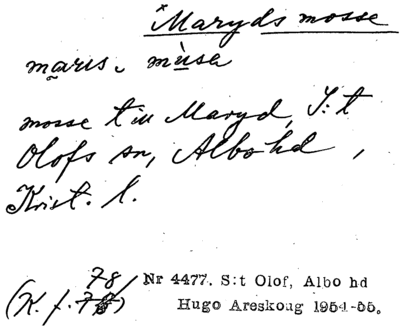 ×Maryds mosse
maris, mùsa
mosse till Maryd, S:t
Olofs sn, Albo hd,
Krist. l.
78
(K. f. 78)
Nr 4477. S:t Olof, Albo hd
Hugo Areskoug 1954-55.